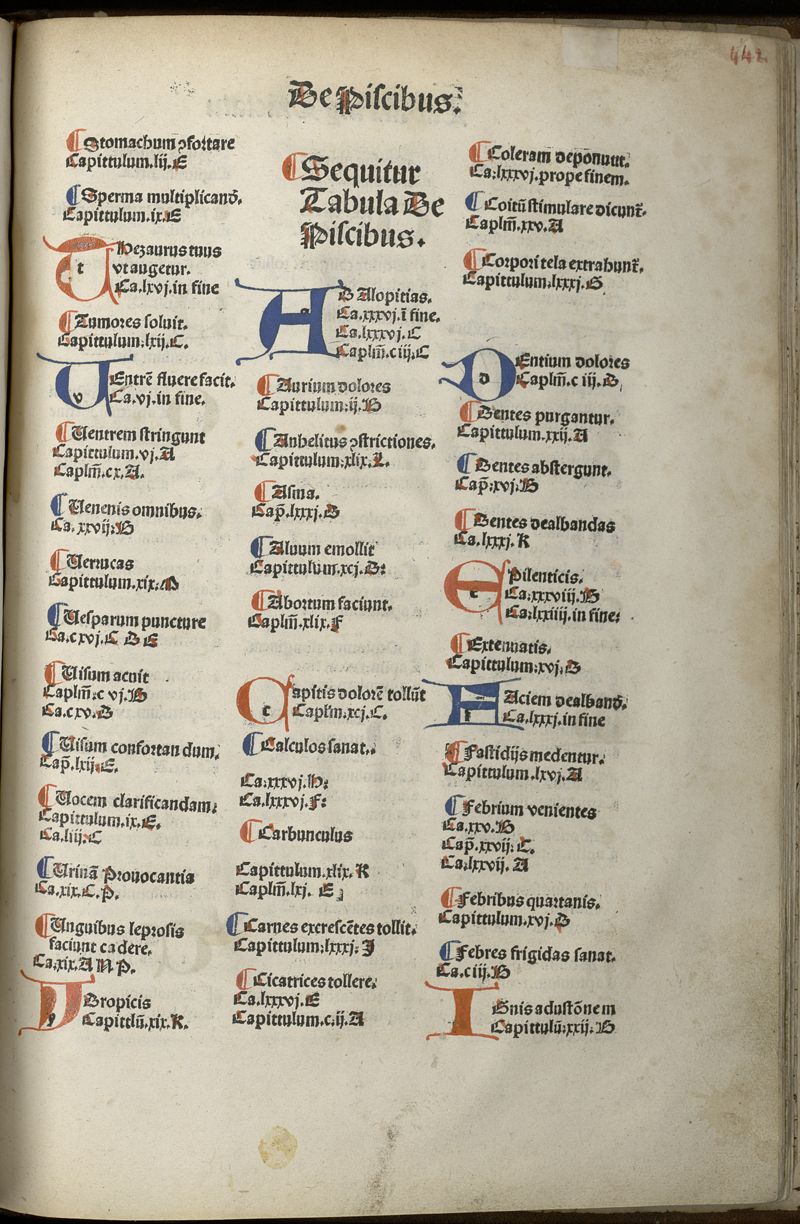 442
De Piscibus.
Stomachum ꝯfortare
Capittulum.lij.E
Sperma multiplicand̄.
Capittulum.ix.E
Thezaurus tuus
vt augetur.
Ca.lxvj.in fine
Tumores soluit.
Capittulum.lxij.C.
VEntrē fluere facit.
Ca.vj.in fine.
Uentrem stringunt
Capittulum.vj.A
Caplm̄.cx.A.
Uenenis omnibus.
Ca.xxvij.B
Uerrucas
Capittulum.xix.D
Uesparum puncture
Ca.cxvj.C D E
Uisum acuit
Caplm̄.c vj.B
Ca.cxv.D
Uisum confortan dum.
Cap̄.lxij.E.
Uocem clarificandam.
Capittulum.ix.E.
Ca.liij.C
Urinā Prouocantia
Ca.xix.C.P.
Unguibus leprosis
faciunt ca dere.
Ca.xix.A N.P.
YDropicis
Capittlū.xix.K.
Sequitur
Tabula De
Piscibus.
AD Alopitias.
Ca.xxxvj.ī fine.
Ca.lxxxvj.C
Caplm̄.ciij.C
Aurium dolores
Capittulum.ij.B
Anhelitus ꝯstrictiones.
Capittulum.xlix.L.
Asma.
Cap̄.lxxxj.D
Aluum emollit
Capittulum.xcj.D.
Abortum faciunt.
Caplm̄.xlix.F
Capitis dolorē tollūt
Caplm̄.xcj.C.
Calculos sanat.
Ca.xxxvj.H.
Ca.lxxxvj.F.
Carbunculus
Capittulum.xlix.K
Caplm̄.lxj. E
Carnes excrescētes tollit.
Capittulum.lxxxj.I
Cicatrices tollere.
Ca.lxxxvj.E
Capittulum.c.ij.A
Coleram deponunt.
Ca.lxxxvj.prope finem.
Coitū stimulare dicunt᷑.
Caplm̄.xxv.A
Corpori tela extrahunt᷑.
Capittulum.lxxxj.G
DEntium dolores
Caplm̄.c iij.B
Dentes purgantur.
Capittulum.xxij.A
Dentes abstergunt.
Cap̄.xvj.B
Dentes dealbandas
Ca.lxxxj.K
EPilenticis.
Ca.xxxviij.B
Ca.lxxiiij.in fine.
Extenuatis.
Capittulum.xvj.D
FAciem dealband̄.
Ca.lxxxj.in fine
Fastidijs medentur.
Capittulum.lxvj.A
Febrium venientes
Ca.xxv.B
Cap̄.xxvij.C.
Ca.lxxvij.A
Febribus quartanis.
Capittulum.xvj.D
Febres frigidas sanat.
Ca.ciij.B
IGnis adustōnem
Capittulū.xxij.B